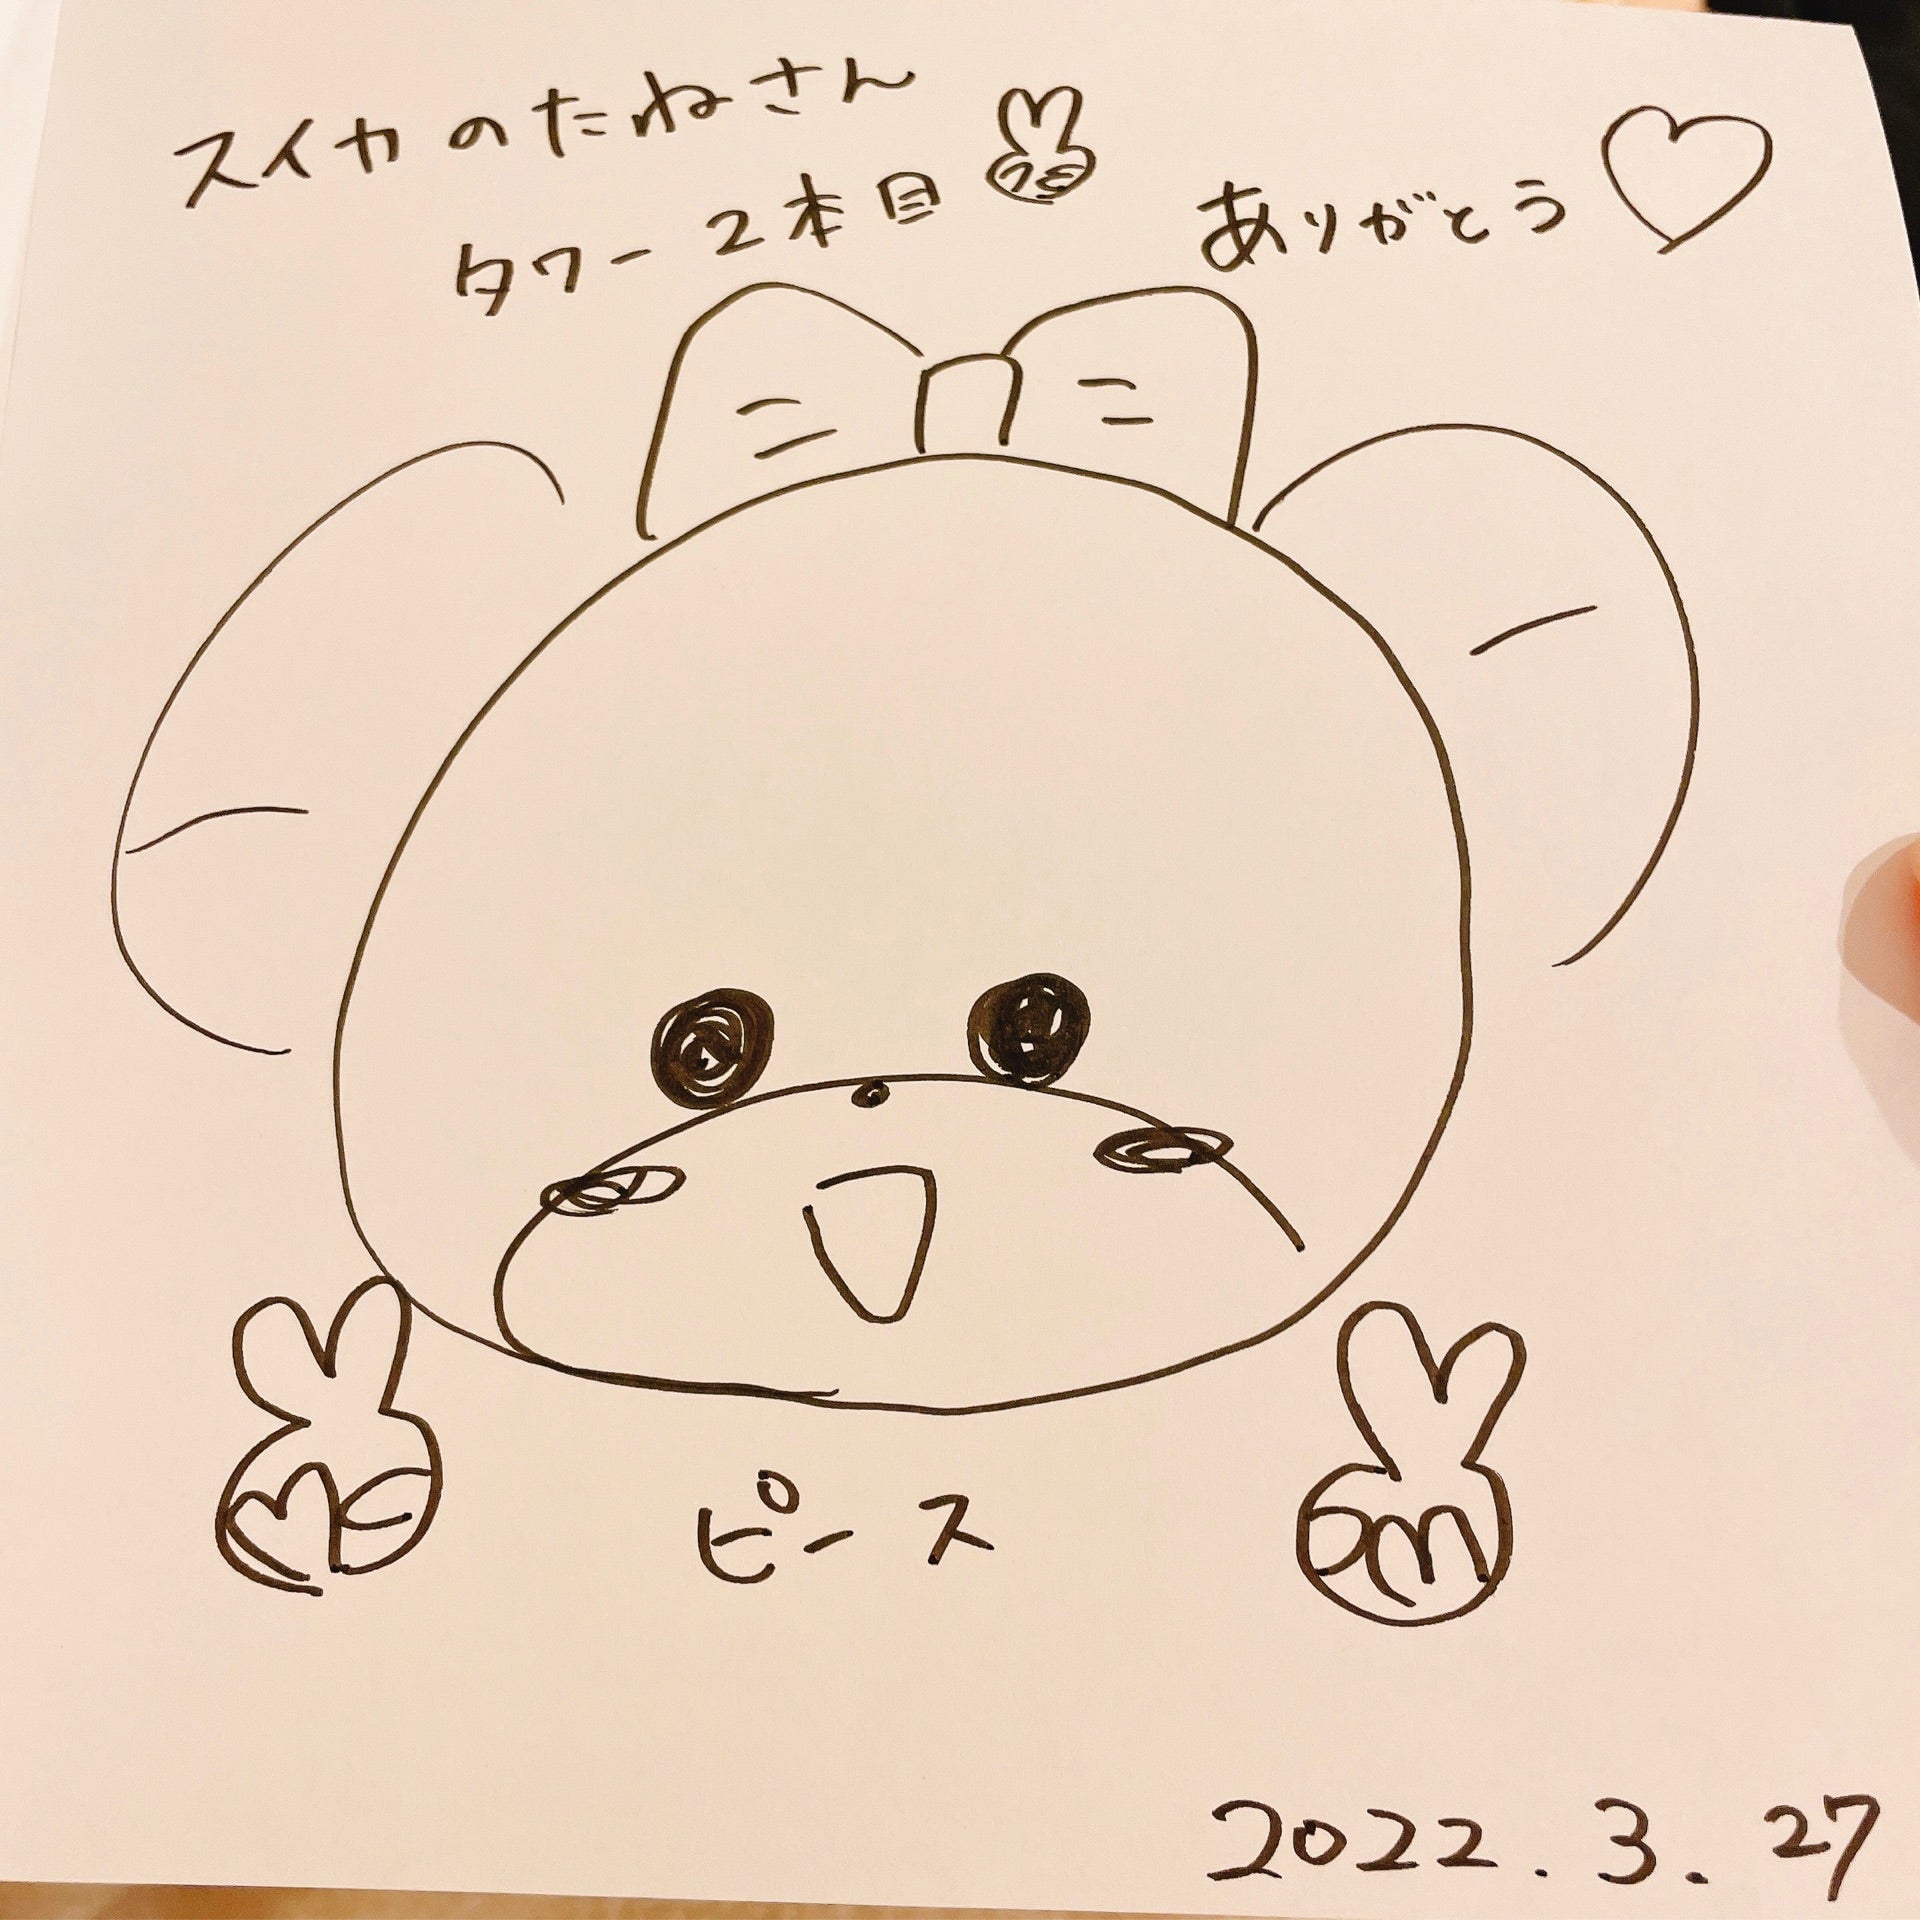 スイカのたねさん
タワー2本目
ありがとう
ピース
2022.3.27